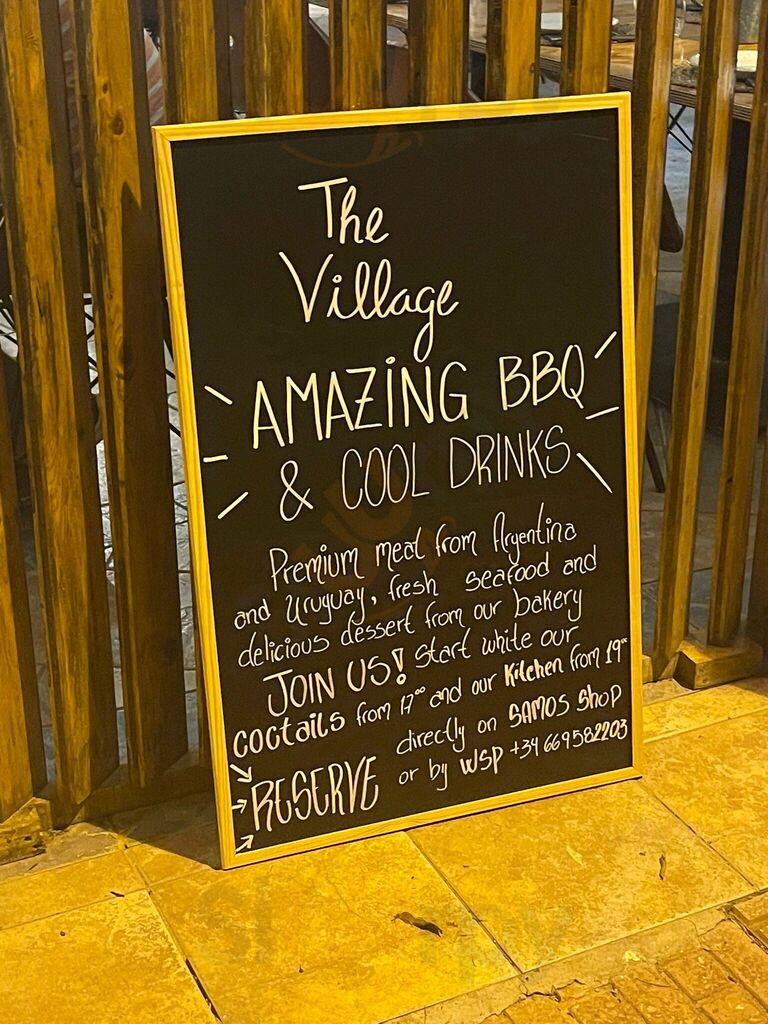 The
Village
AMAZING BBQ
& COOL DRINKS
Premium meat from Argentina
and Uruguay, fresh seafood and
delicious dessert from our bakery
JOIN US! Start white our
coctails from 17°° and our Kitchen from 19°°
RESERVE directly on SAMOS Shop
or by WSP +34 669582203